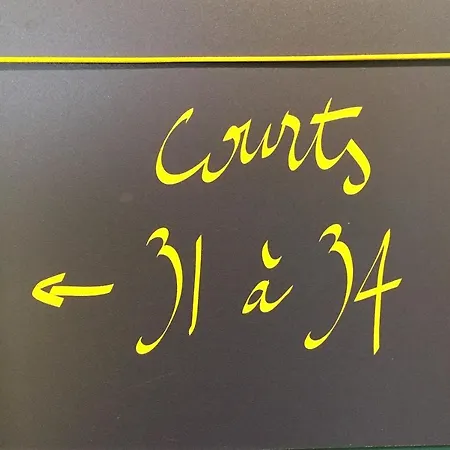 Courts
← 31 à 34